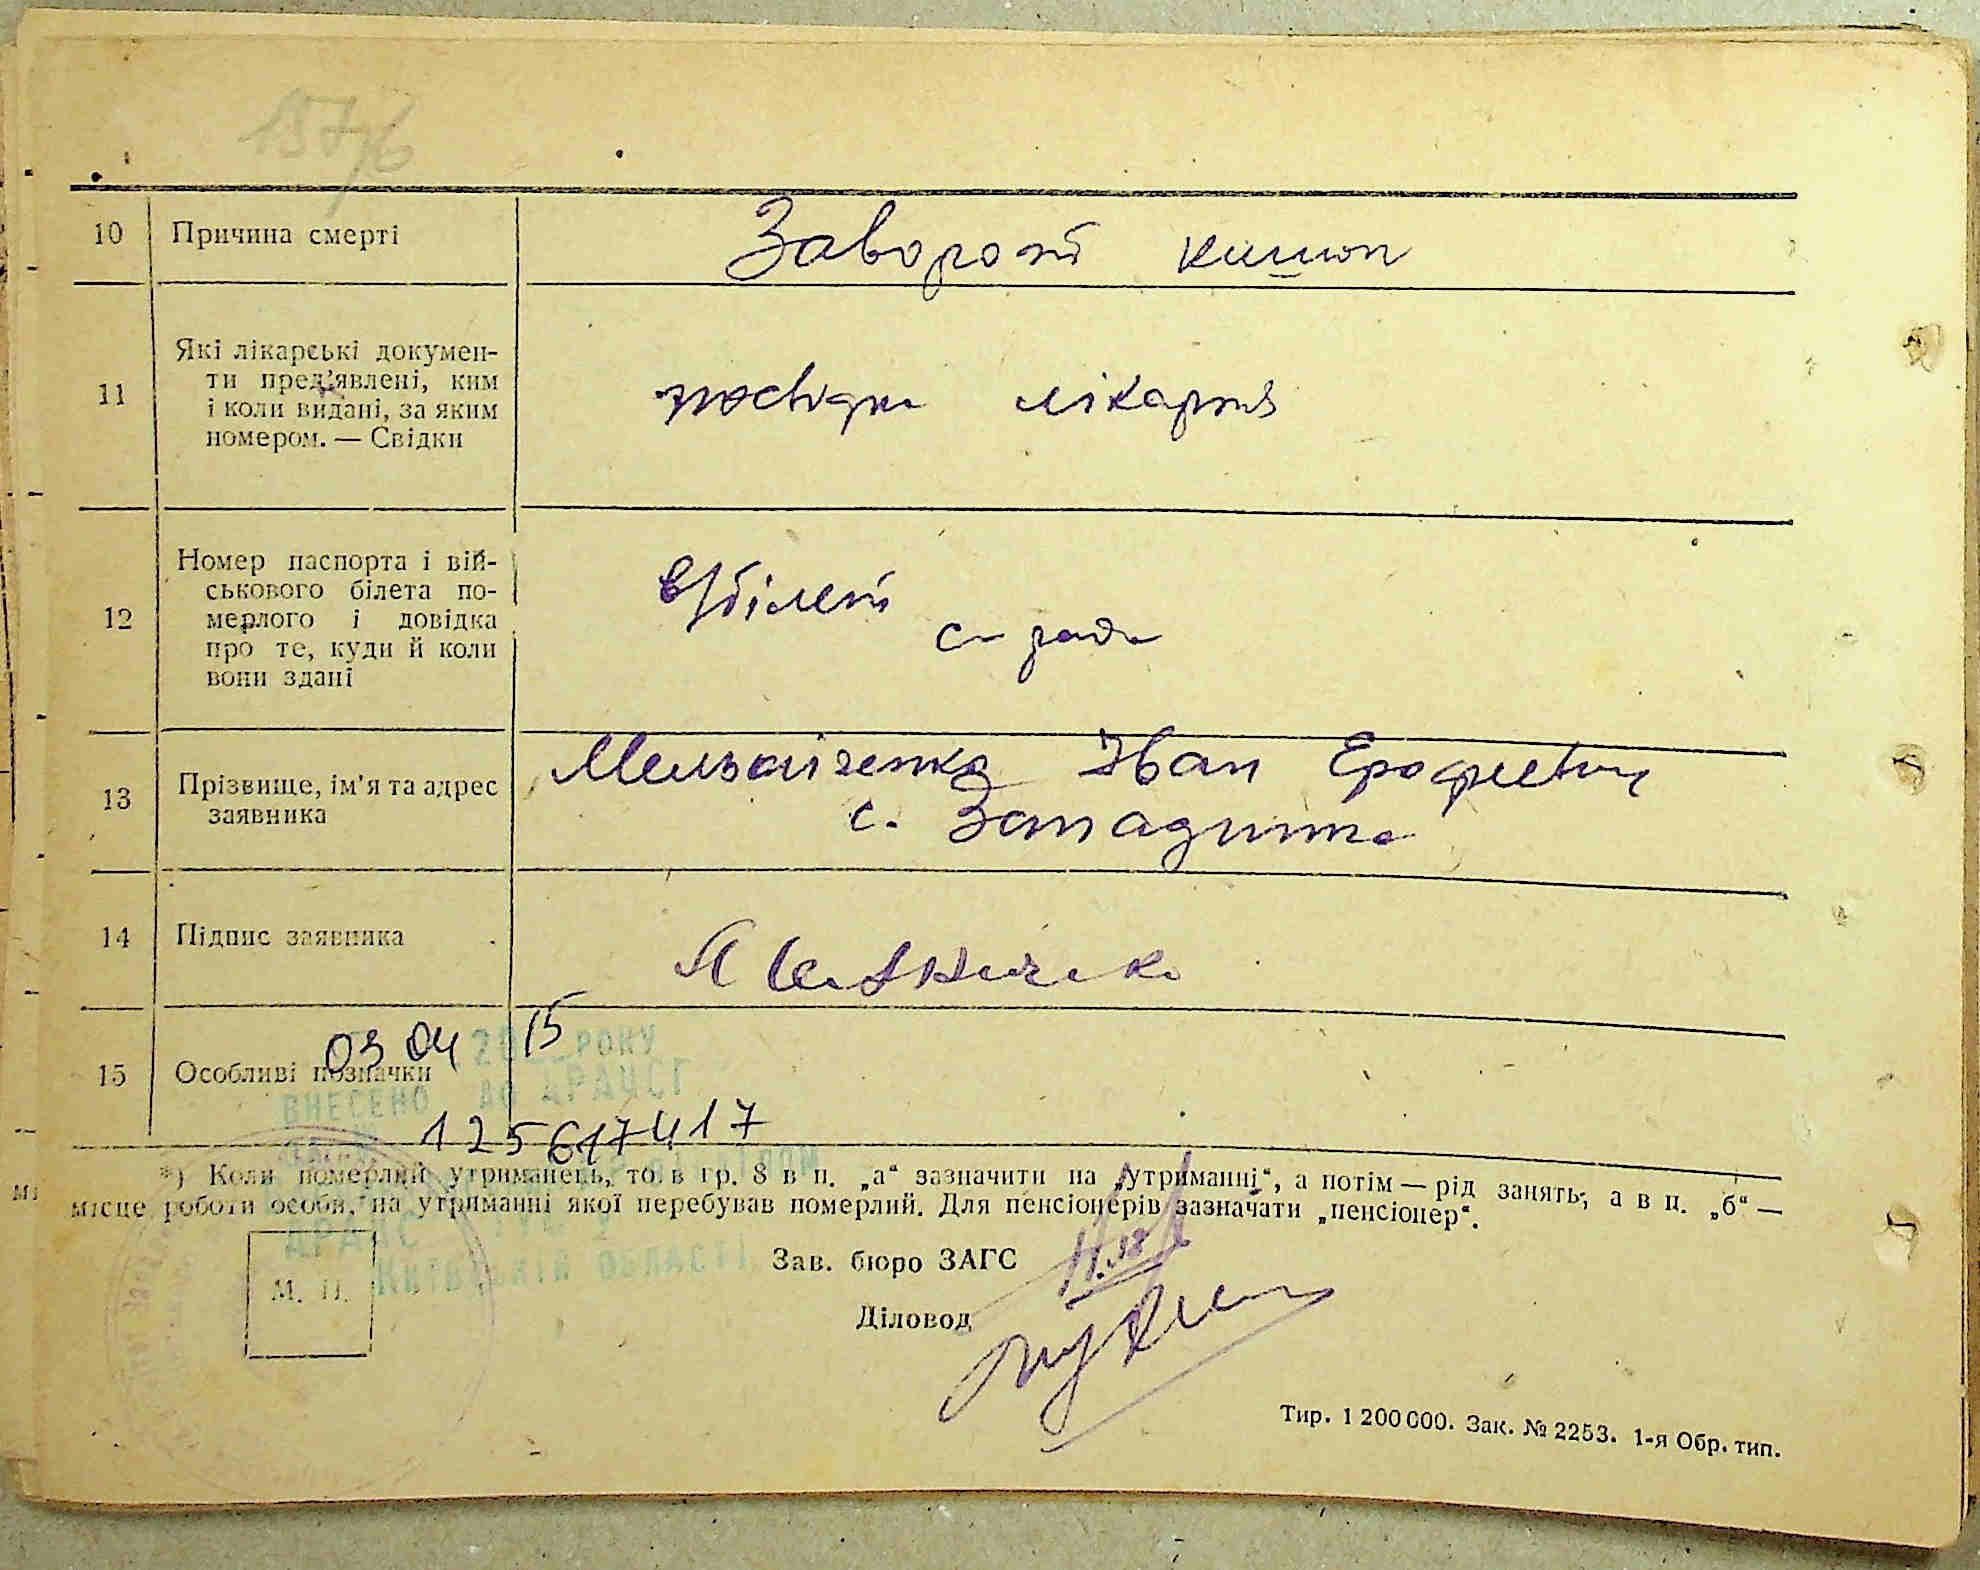 157/6
10 Причина смерті Заворот кишок
11 Які лікарські докумен-
ти пред’явлені, ким
і коли видані, за яким
номером. — Свідки
посвідка лікарня
12 Номер паспорта і вій-
ськового білета по-
мерлого і довідка
про те, куди й коли
вони здані
в/білет
с-рада
13 Прізвище, ім'я та адрес
заявника
Мельниченко Іван Ерофиевич
с.
14 Підпис заявника
03 04 2015 РОКУ
15 Особливі позначки
ВНЕСЕНО ДО ДРАЦСГ
125617417
*) Коли померлий утриманець, то в гр. 8 в п. „а“ зазначити на „утриманні“, а потім — рід занять, а в п. „б“ —
місце роботи особи, на утриманні якої перебував померлий. Для пенсіонерів зазначати „пенсіонер“.
КИЇВСЬКІЙ ОБЛАСТІ
М. П.
Зав. бюро ЗАГС
Діловод
Тир. 1 200 000. Зак. № 2253. 1-я Обр. тип.